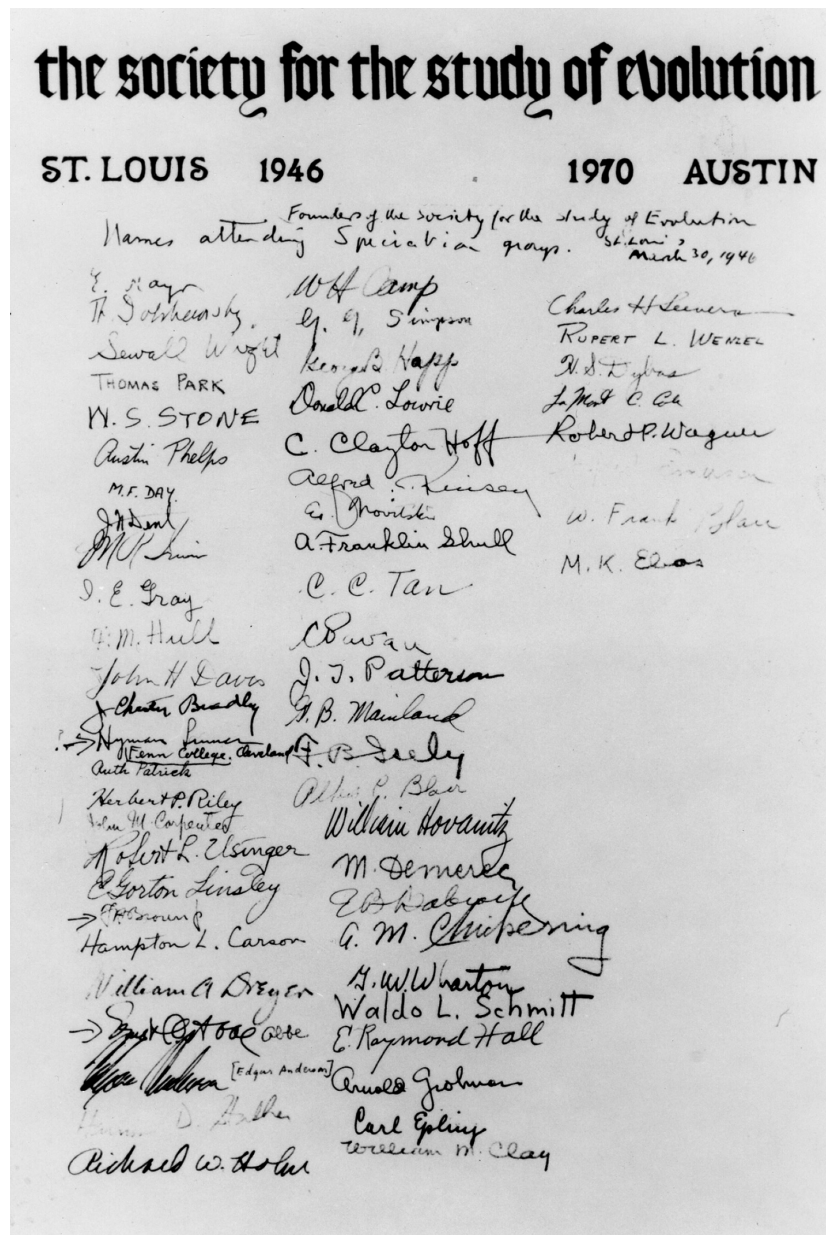 the society for the study of evolution
ST. LOUIS 1946 1970 AUSTIN
Founders of the society for the study of Evolution
Names attending Speciation group. St. Louis
March 30, 1946
E. Mayr
Th Dobzhansky
Sewall Wright
THOMAS PARK
W. S. STONE
Austin Phelps
M.F. DAY
J N Dent
I. E. Gray
M. Hull
John H Davis
J Chester Bradley
Hyman
Fenn College. Cleveland
Ruth Patrick
Herbert P. Riley
John M. Carpenter
Robert L. Usinger
E Gorton Linsley
Brown
Hampton L. Carson
William A Dreyer
Abbe
[Edgar Anderson]
D.
Richard W. Holm
W H Camp
G. G. Simpson
George B Happ
Donald C. Lowrie
C. Clayton Hoff
Alfred C. Kinsey
E. Novitski
A. Franklin Shull
C. C. Tan
J. T. Patterson
G. B. Mainland
F. B. Isely
Albert P. Blair
William Hovanitz
M. Demerec
E B Babcock
A. M. Chickering
G. W. Wharton
Waldo L. Schmitt
E. Raymond Hall
Arnold Grobman
Carl Epling
William M. Clay
Charles H Seevers
RUPERT L. WENZEL
H. S. Dybas
LaMont C. Cole
Robert P. Wagner
Emerson
W. Frank Blair
M. K. Elias